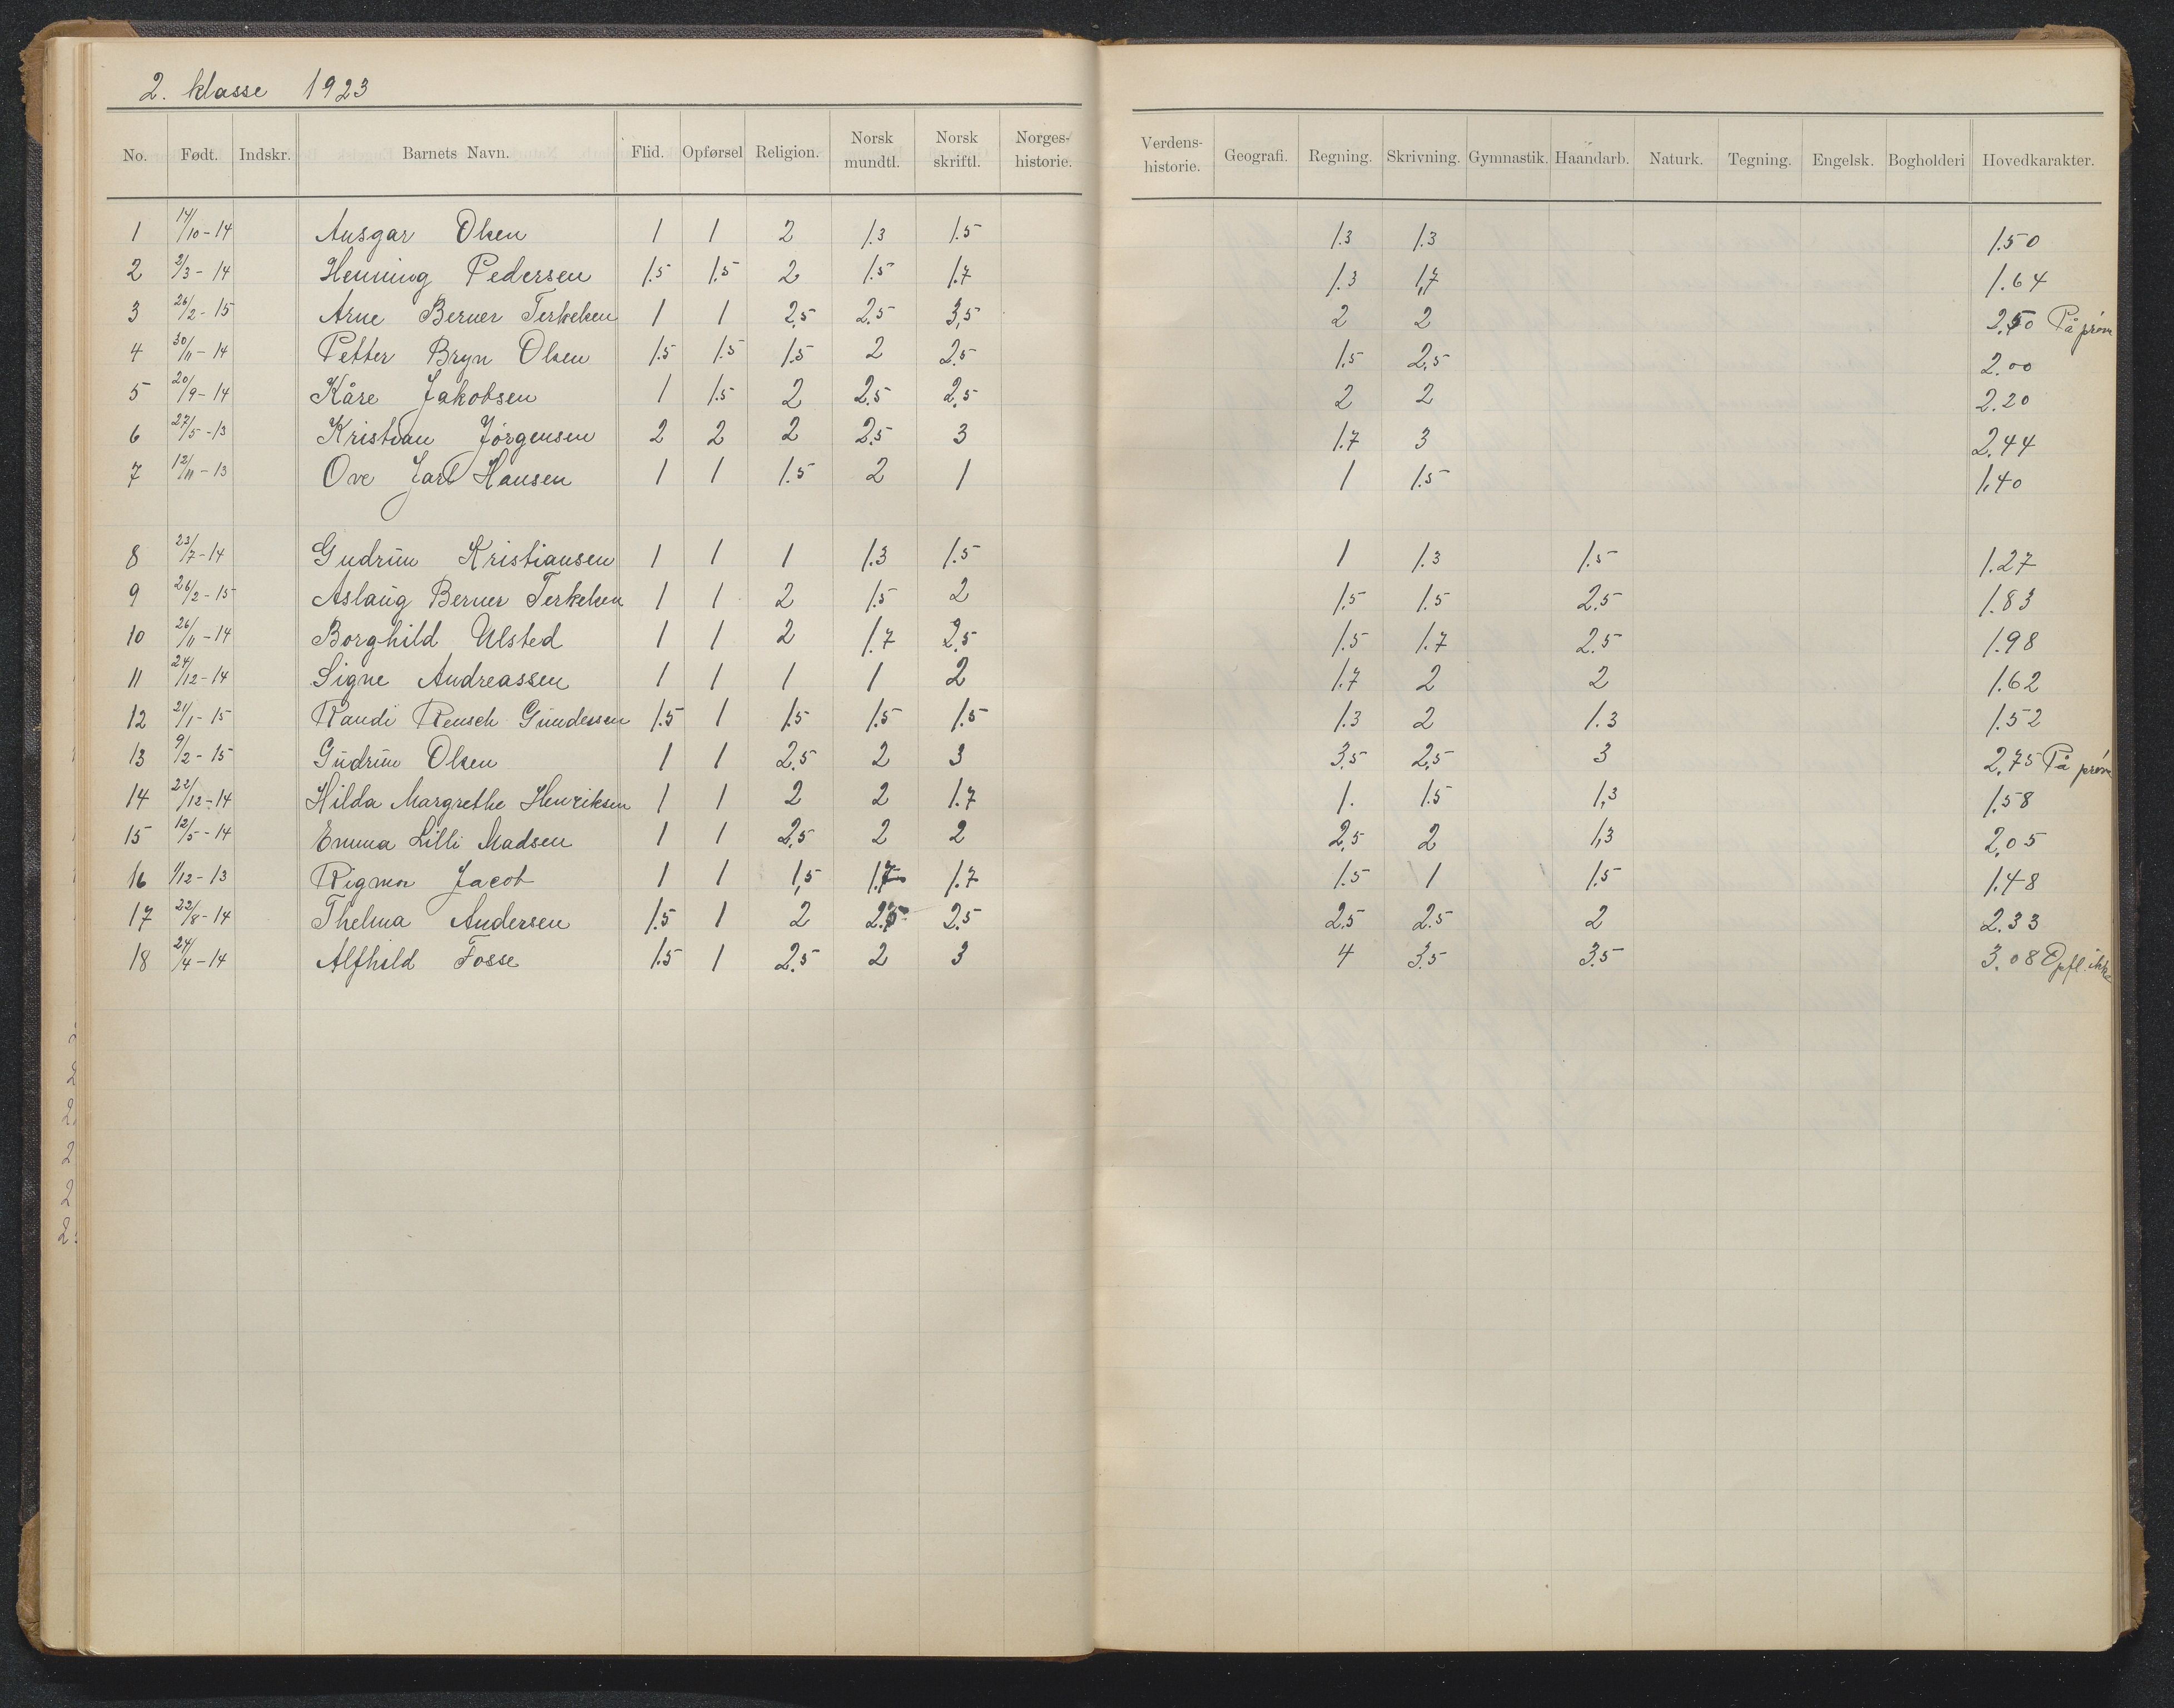 2. klasse 1923
No. Født. Indskr. Barnets Navn. Flid. Opførsel Religion. Norsk mundtl. Norsk skriftl. Norges-historie. Verdens-historie. Geografi. Regning. Skrivning. Gymnastik. Haandarb. Naturk. Tegning. Engelsk. Bogholderi Hovedkarakter.
1 14/10-14 Ansgar Olsen 1 1 2 1.3 1.5 1.3 1.3 1.50
2 2/3-14 Henning Pedersen 1.5 1.5 2 1.5 1.7 1.3 1,7 1.64
3 26/2-15 Arne Berner Terkelsen 1 1 2,5 2.5 3,5 2 2 2.50 På prøve
4 30/11-14 Petter Bryn Olsen 1.5 1.5 1.5 2 2.5 1.5 2,5 2.00
5 20/9-14 Kåre Jakobsen 1 1.5 2 2.5 2,5 2 2 2.20
6 27/5-13 Kristian Jörgensen 2 2 2 2.5 3 1.7 3 2,44
7 12/11-13 Ove Jarl Hansen 1 1 1.5 2 1 1 1.5 1,40
8 23/7-14 Gudrun Kristiansen 1 1 1 1.3 1.5 1 1.3 1.5 1.27
9 26/2-15 Aslaug Berner Terkelsen 1 1 2 1.5 2 1,5 1.5 2.5 1.83
10 26/11-14 Borghild Ulsted 1 1 2 1.7 2,5 1.5 1.7 2.5 1.98
11 24/12-14 Signe Andreassen 1 1 1 1 2 1.7 2 2 1.62
12 21/1-15 Randi Rensch Gundersen 1.5 1 1.5 1.5 1.5 1.3 2 1.3 1.52
13 9/2-15 Gudrun Olsen 1 1 2.5 2 3 3.5 2,5 3 2,75 På prøve
14 22/12-14 Hilda Margrethe Henriksen 1 1 2 2 1.7 1. 1.5 1,3 1.58
15 12/5-14 Emma Lilli Madsen 1 1 2,5 2 2 2,5 2 1,3 2,05
16 1/12-13 Rigmor Jacob 1 1 1,5 1.7 1.7 1.5 1 1.5 1.48
17 22/8-14 Thelma Andersen 1.5 1 2 2.5 2.5 2.5 2.5 2 2.33
18 24/4-14 Alfhild Fosse 1.5 1 2.5 2 3 4 3.5 3.5 3.08 Opfl. ikke